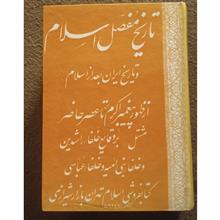 تاریخ مفصل اسلام
و تاریخ ایران بعد از اسلام
از ظهور پیغمبر اکرم تا عصر حاضر
مشتمل بر وقایع خلفاء راشدین
و خلفای بنی امیه و خلفاء عباسی
کتابفروشی اسلام تهران بازار شیرازی